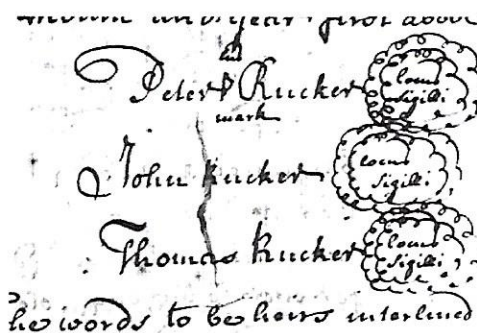 year first above
his
Peter P Rucker
mark
locus
Sigilli
John Rucker
locus
Sigilli
Thomas Rucker
locus
Sigilli
he words to be heirs interlined